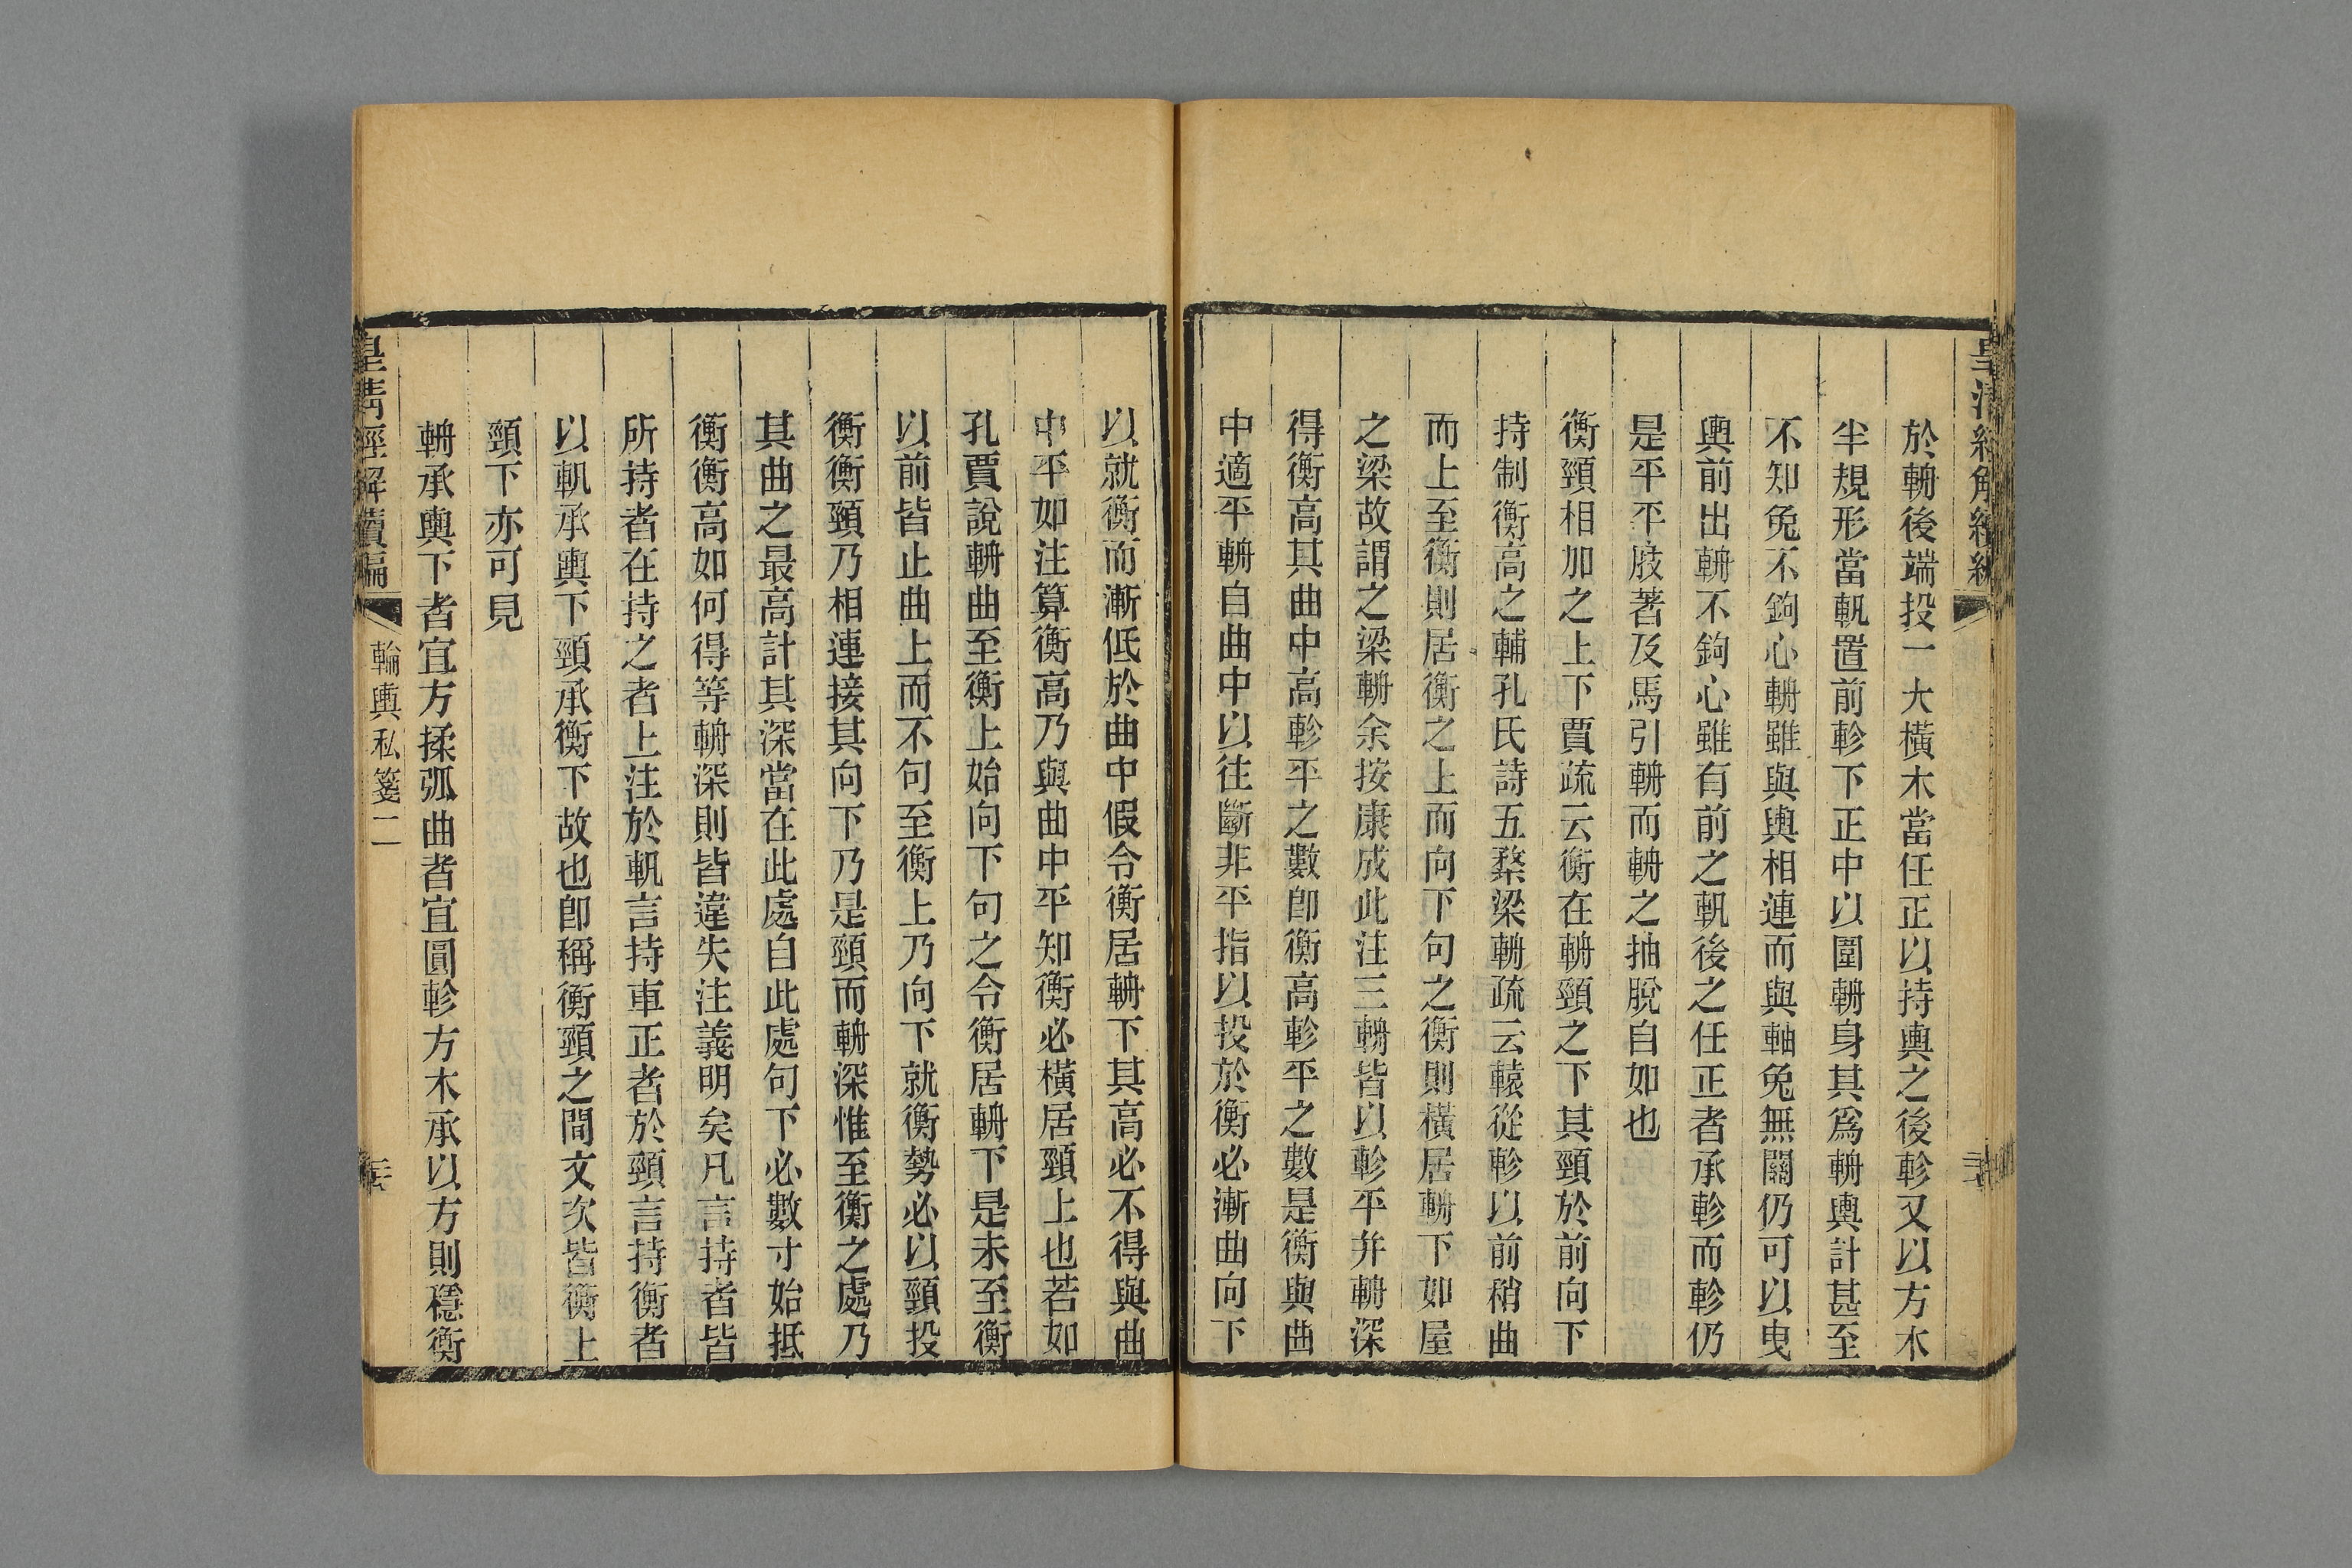 於輈後端投一大橫木當任正以持輿之後軫又以方木
半規形當軓置前軫下正中以圍輈身其爲輈輿計甚至
不知兔不鉤心輈雖與輿相連而與軸兔無關仍可以曳
輿前出輈不鉤心雖有前之軓後之任正者承軫而軫仍
是平平庪著及馬引輈而輈之抽脫自如也
衡頸相加之上下賈疏云衡在輈頸之下其頸於前向下
持制衡高之輔孔氏詩五楘梁輈疏云轅從軫以前稍曲
而上至衡則居衡之上而向下句之衡則橫居輈下如屋
之梁故謂之梁輈余按康成此注三輈皆以軫平幷輈深
得衡高其曲中高軫平之數卽衡高軫平之數是衡與曲
中適平輈自曲中以往斷非平指以投於衡必漸曲向下
以就衡而漸低於曲中假令衡居輈下其高必不得與曲
中平如注算衡高乃與曲中平知衡必橫居頸上也若如
孔賈說輈曲至衡上始向下句之令衡居輈下是未至衡
以前皆止曲上而不句至衡上乃向下就衡勢必以頸投
衡衡頸乃相連接其向下乃是頸而輈深惟至衡之處乃
其曲之最高計其深當在此處自此處句下必數寸始抵
衡衡高如何得等輈深則皆違失注義明矣凡言持者皆
所持者在持之者上注於軓言持車正者於頸言持衡者
以軓承輿下頸承衡下故也卽稱衡頸之間文次皆衡上
頸下亦可見
輈承輿下者宜方揉弧曲者宜圓軫方木承以方則穩衡
皇清經解續編
輪輿私箋二